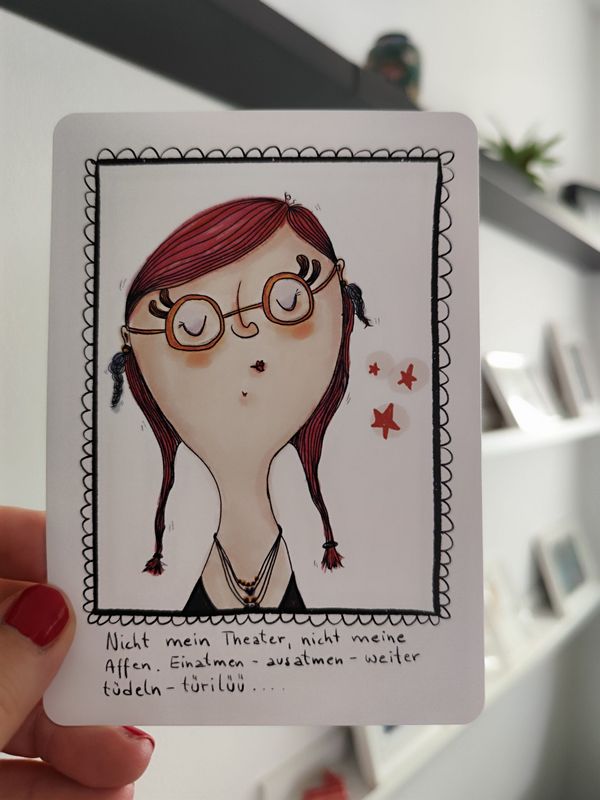 Nicht mein Theater, nicht meine
Affen. Einatmen - ausatmen - weiter
tüdeln - türilüü ....